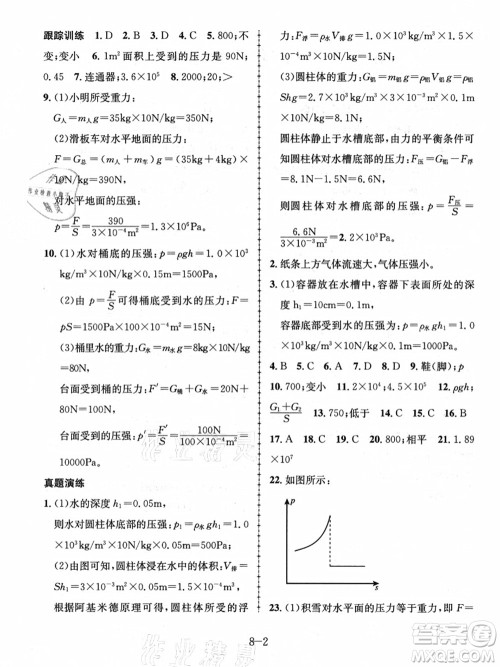 跟踪训练 1. D 2. B 3. C 4. D 5. 800;不
变;变小 6. 1m² 面积上受到的压力是 90N;
0.45 7. 连通器;3.6×10⁵ 8. 2000;>
9. (1)小明所受重力:
G人=m人g=35kg×10N/kg=350N
(2)滑板车对水平地面的压力:
F=G总=(m人+m车)g=(35kg+4kg)×
10N/kg=390N
对水平地面的压强:
p=F/S=390/(3×10⁻³m²)=1.3×10⁵Pa。
10. (1)水对桶底的压强:p=ρgh=1.0×10³
kg/m³×10N/kg×0.15m=1500Pa。
(2)由 p=F/S可得桶底受到水的压力:F=
pS=1500Pa×2×10⁻²m²=30N
(3)桶里水的重力:G水=m水g=6kg×
10N/kg=60N
台面受到的压力:F′=G桶+G水=40N+
60N=100N
台面受到的压强:p′=F′/S=100N/(100×10⁻⁴m²)=
10000Pa。
真题演练
1. (1)水的深度 h₁=0.05m,
则水对圆柱体底部的压强:p₁=ρgh₁=1.0×
10³kg/m³×10N/kg×0.05m=500Pa。
(2)由图可知,圆柱体浸在水中的体积:V=
Sh₁=3×10⁻³m²×0.05m=1.5×10⁻⁴m³
根据阿基米德原理,圆柱体所受的浮
力:F浮=ρ水gV排=ρ水gV浸=1.0×10³
kg/m³×10N/kg×1.5×10⁻⁴m³=1.5N。
(3)圆柱体的重力:G铝=m铝g=ρ铝Vg=ρ铝
Shg=2.7×10³kg/m³×3×10⁻³m²×
0.1m×10N/kg=8.1N
圆柱体静止于水槽底部,由力的平衡条件可
知圆柱体对水槽底部的压力:F压=G铝-
F浮=8.1N-1.5N=6.6N
圆柱体对水槽底部的压强:p=F压/S=
6.6N/(3×10⁻³m²)=2.2×10³Pa。
2. 纸条上方气体流速大,气体压强小。
3. (1)容器放在水槽中,容器下表面所处的深
度:h=10cm=0.1m,
容器底部受到水的压强:p=ρ水gh=1×
10³kg/m³×10N/kg×0.1m=1000Pa。
4. B 5. C 6. A 7. D 8. D 9. 鞋(脚);C
10. 700;变小 11. 4.2×10³ 12. ρgh;
(G₁+G₂)/S 13. 750;低于 14. C 15. C 16. B
17. A 18. C 19. C 20. 相平 21. 1.89
×10⁷
22. 如图所示:
p
s
23. (1)积雪对水平面的压力等于重力,F=
8-2